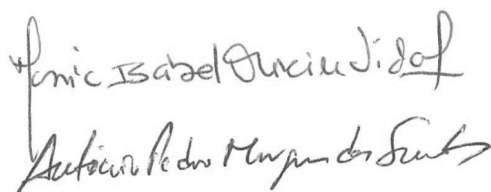 Maria Isabel Oliveira Vidal
António Pedro Marques dos Santos